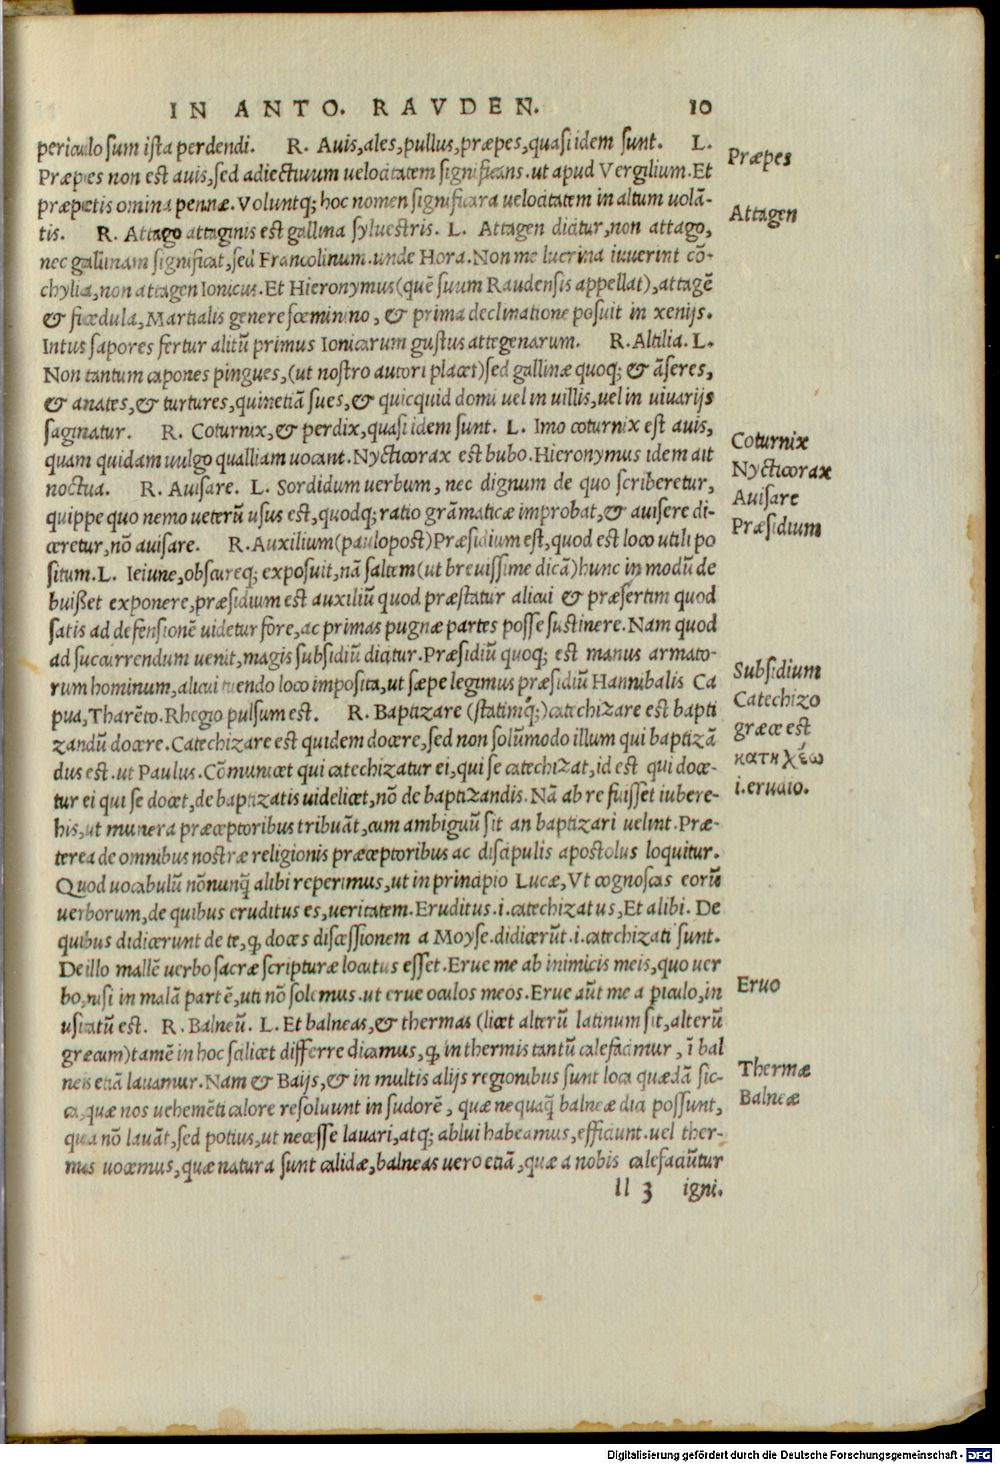 IN ANTO. RAVDEN. 10
periculo sum ista perdendi. R. Auis, ales, pullus, præpes, quasi idem sunt. L.
Præpes non est auis, sed adiectiuum uelocitatem significans. ut apud Vergilium. Et
præpetis omina pennæ. Voluntq; hoc nomen significara uelocitatem in altum uolā-
tis. R. Attago attaginis est gallina syluestris. L. Attagen dicitur, non attago,
nec gallinam significat, sed Francolinum. unde Hora. Non me lucrina iuuerint cō-
chylia, non attagen Ionicus. Et Hieronymus (quē suum Raudensis appellat), attagē
& ficedula, Martialis genere fœminino, & prima declinatione posuit in xenijs.
Intus sapores fertur alitū primus Ionicarum gustus attegenarum. R. Altilia. L.
Non tantum capones pingues, (ut nostro autori placet) sed gallinæ quoq; & āseres,
& anates, & turtures, quinetiā sues, & quicquid domi uel in uillis, uel in uiuarijs
saginatur. R. Coturnix, & perdix, quasi idem sunt. L. Imo coturnix est auis,
quam quidam uulgo qualliam uocant. Nycticorax est bubo. Hieronymus idem ait
noctua. R. Auisare. L. Sordidum uerbum, nec dignum de quo scriberetur,
quippe quo nemo ueterū usus est, quodq; ratio grāmaticæ improbat, & auisere di-
ceretur, nō auisare. R. Auxilium (paulopost) Præsidium est, quod est loco utili po
situm. L. Ieiune, obscureq; exposuit, nā saltem (ut breuissime dicā) hunc in modū de
buißet exponere, præsidium est auxiliū quod præstatur alicui & præsertim quod
satis ad defensionē uidetur fore, ac primas pugnæ partes posse sustinere. Nam quod
ad succurrendum uenit, magis subsidiū dicitur. Præsidiū quoq; est manus armato-
rum hominum, alicui tuendo loco imposita, ut sæpe legimus præsidiū Hannibalis Ca
pua, Tharēto. Rhegio pulsum est. R. Baptizare (statimq́;) catechizare est bapti
zandū docere. Catechizare est quidem docere, sed non solūmodo illum qui baptizā
dus est. ut Paulus. Cōmunicet qui catechizatur ei, qui se catechizat, id est qui doce-
tur ei qui se docet, de baptizatis uidelicet, nō de baptizandis. Nā ab re fuisset iubere-
his, ut munera præceptoribus tribuāt, cum ambiguū sit an baptizari uelint. Præ-
terea de omnibus nostræ religionis præceptoribus ac discipulis apostolus loquitur.
Quod uocabulū nōnunq̄ alibi reperimus, ut in principio Lucæ, Vt cognoscas eorū
uerborum, de quibus eruditus es, ueritatem. Eruditus .i. catechizatus, Et alibi. De
quibus didicerunt de te, q̨ doces discessionem a Moyse. didicerūt .i. catechizati sunt.
De illo mallē uerbo sacræ scripturæ locutus esset. Erue me ab inimicis meis, quo uer
bo, nisi in malā partē, uti nō solemus. ut erue oculos meos. Erue aūt me a piculo, in
usitatū est. R. Balneū. L. Et balneas, & thermas (licet alterū latinum sit, alterū
græcum) tamē in hoc scilicet differre dicamus, q̨ in thermis tantū calefacimur, ī bal
neis etiā lauamur. Nam & Baijs, & in multis alijs regionibus sunt loca quædā sic-
ca, quæ nos uehemēti calore resoluunt in sudorē, quæ nequaq̄ balneæ dici possunt,
quia nō lauāt, sed potius, ut necesse lauari, atq; ablui habeamus, efficiunt. uel ther-
mas uocemus, quæ natura sunt calidæ, balneas uero etiā, quæ a nobis calefaciūtur
ll 3 igni.
Præpes
Attagen
Coturnix
Nycticorax
Auisare
Præsidium
Subsidium
Catechizo
græce est
κατηχέω
i. eruaio.
Eruo
Thermæ
Balneæ
Digitalisierung gefördert durch die Deutsche Forschungsgemeinschaft - DFG